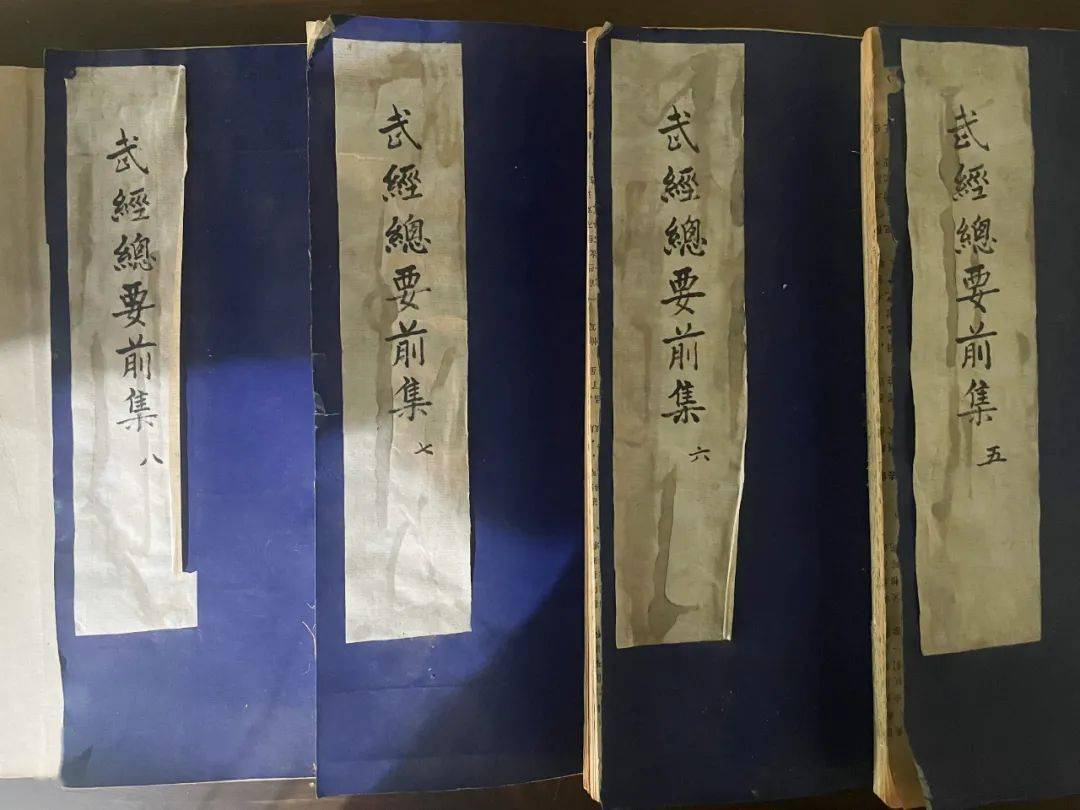 武經總要前集 五
武經總要前集 六
武經總要前集 七
武經總要前集 八